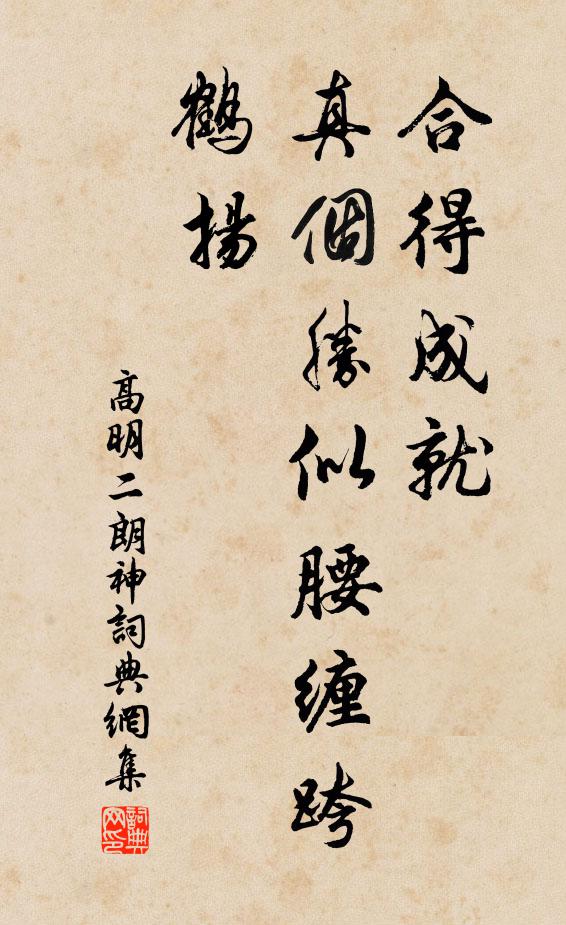 合得成就
真個勝似腰纏跨
鶴揚
高明二朗神詞典網集
詞典
网印